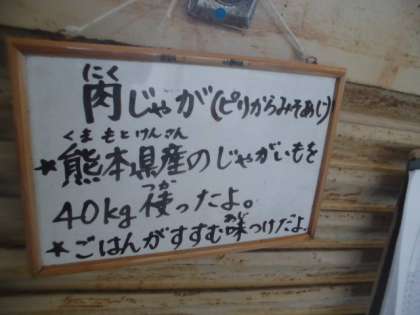 にく
肉じゃが(ピリからみそあじ)
くまもとけんさん
★熊本県産のじゃがいもを
つか
40kg使ったよ。
あじ
★ごはんがすすむ味つけだよ。